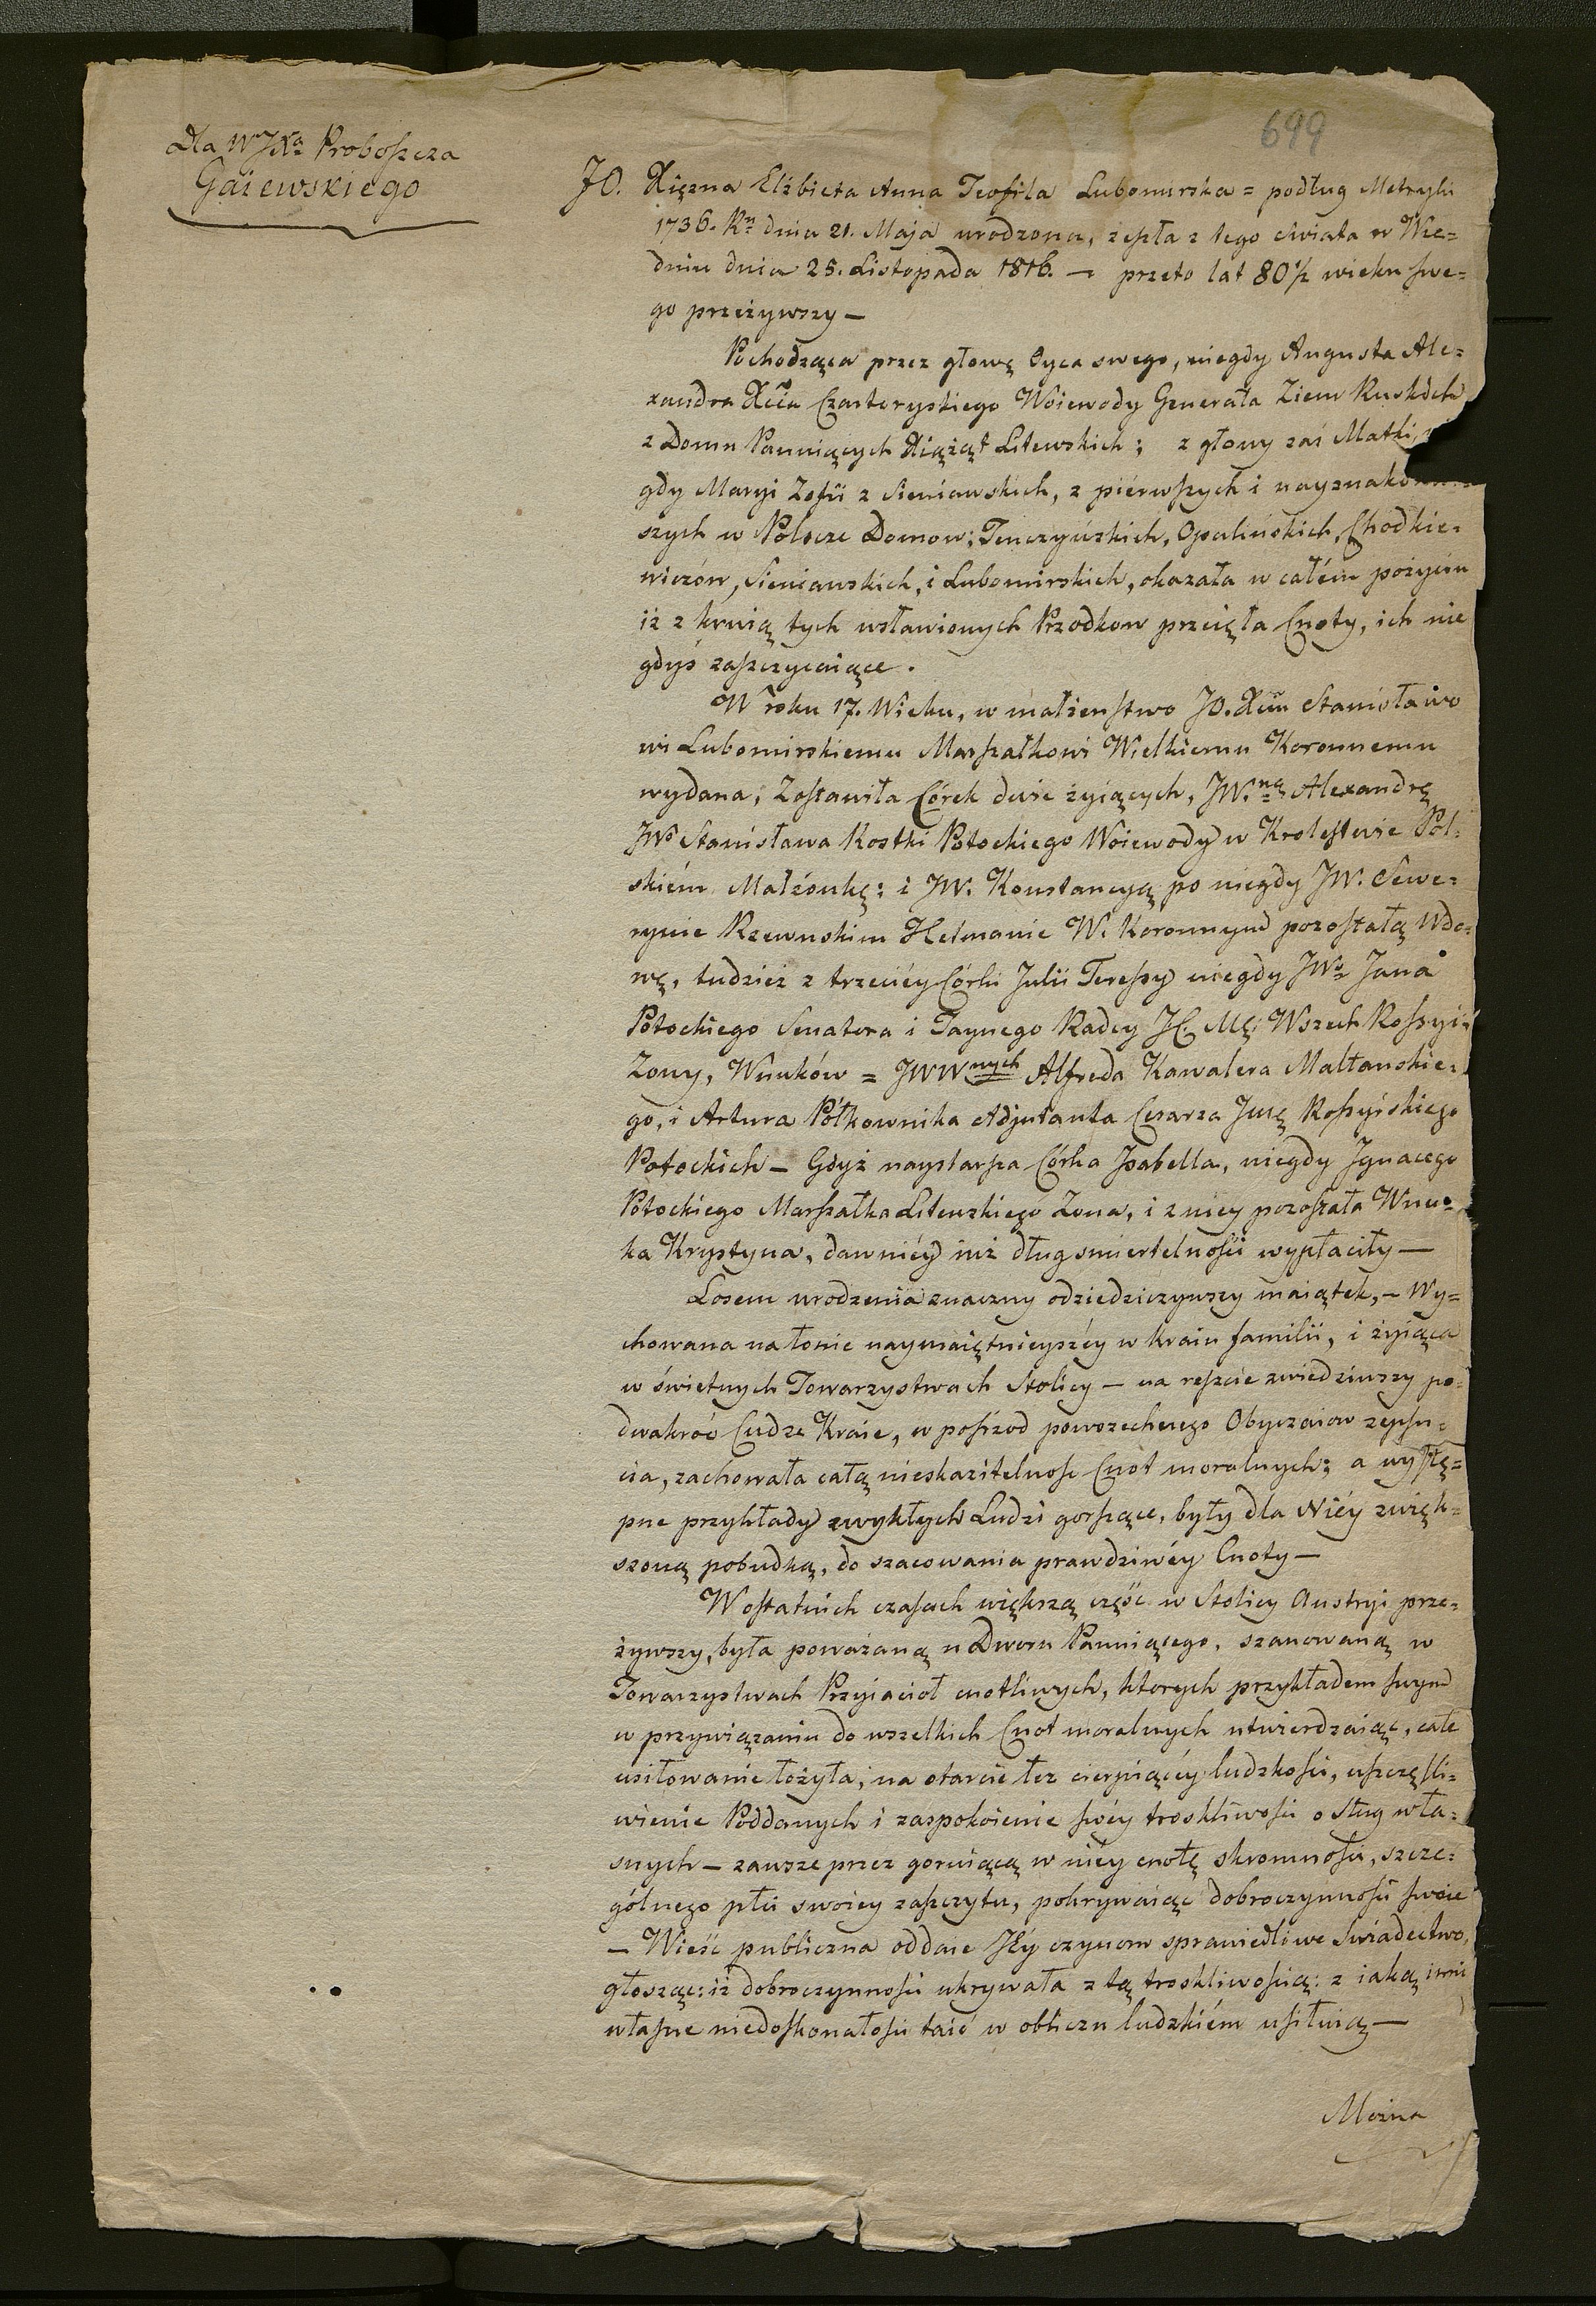 699
Dla WJXa Proboszcza
Gaiewskiego
JO. Xiężna Elżbieta Anna Teofila Lubomirska = podług Metryki
1736. Ru dnia 21. Maja urodzona, zeszła z tego świata w Wie=
dniu dnia 25. Listopada 1816. — przeto lat 80 1/2 wieku swe=
go przeżywszy —
Pochodząca przez głowę Oyca swego, niegdy Augusta Ale=
xandra Xcia Czartoryskiego Woiewody Generała Ziem Ruskich
z Domu Panuiących Xiążąt Litewskich; z głowy zaś Matki,
gdy Maryi Zofii z Sieniawskich, z piérwszych i nayznako
szych w Polscze Domow; Tenczyńskich, Opalińskich, Chodkie=
wiczów, Sieniawskich, i Lubomirskich, okazała w całém pożyciu
iż z krwią tych wsławionych Przodkow przeięła Cnoty, ich nie
gdyś zaszczycaiące.
W roku 17. Wieku, w małżenstwo JO. Xciu Stanisławo
wi Lubomirskiemu Marszałkowi Wielkiemu Koronnemu
wydana, Zostawiła Córek dwie żyiących, JW.ną Alexandrę
JWo Stanisława Kostki Potockiego Woiewody w Krolestwie Pol=
skiém Małżonkę: i JW. Konstancyą po niegdy JW. Sewe=
rynie Rzewuskim Hetmanie W. Koronnym pozostałą Wdo=
wę, tudzież z trzeciéy Córki Julii Teressy niegdy JWo Jana
Potockiego Senatora i Taynego Radcy JC. Mći Wszech Rossyi
Zony, Wnuków = JWWnych Alfreda Kawalera Maltanskie=
go, i Artura Półkownika Adjutanta Cesarza Jmę Rossyiskiego
Potockich — Gdyż naystarsza Córka Isabella, niegdy Ignacego
Potockiego Marszałka Litewskiego Zona, i z niey pozostała Wnu=
ka Krystyna, dawniéy iuż dług smiertelności wypłaciły —
Losem urodzenia znaczny odziedziczywszy maiątek, — Wy=
chowana na łonie naymaiętnieyszéy w kraiu familii, i żyiąca
w świetnych Towarzystwach Stolicy — na reszcie zwiedziwszy po=
dwakroć Cudze Kraie, w pośrzod powszechnego Obyczaiow zepsu=
cia, zachowała całą nieskazitelnosc Cnot moralnych; a wystę=
pne przykłady zwykłych Ludzi gorszące, były dla Niéy zwięk=
szoną pobudką, do szacowania prawdziwéy Cnoty —
W ostatnich czasach większą część w Stolicy Austryi prze=
żywszy, była poważaną u Dworu Panuiącego, szanowaną w
Towarzystwach Przyiacioł cnotliwych, ktorych przykładem swym
w przywiązaniu do wszelkich Cnot moralnych utwierdzaiąc, całe
usiłowanie łożyła; na otarcie łez cierpiącéy ludzkości, uszczęśli=
wienie Poddanych i zaspokoienie swéy troskliwości o sług wła=
snych — zawsze przez goruiącą w niéy cnotę skromności, szcze=
gólnego płci swoiey zaszczytu, pokrywaiąc dobroczynności swoie
— Wieść publiczna oddaie Jéy czynom sprawiedliwe Swiadectwo,
głosząc: iż dobroczynności ukrywała z tą troskliwością: z iaką inni
własne niedoskonałości taić w obliczu ludzkiém usiłuią —
Można